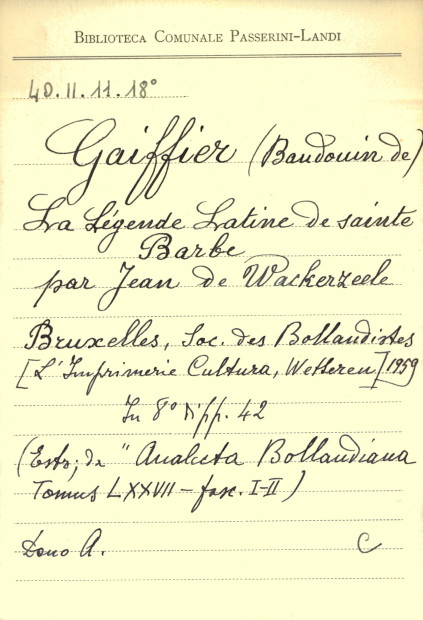 BIBLIOTECA COMUNALE PASSERINI-LANDI
4D.II.11.18°
Gaiffier (Baudouin de)
La Légende Latine de sainte
Barbe
par Jean de Wackerzeele
Bruxelles, Soc. des Bollandistes
[L'Imprimerie Cultura, Wetteren] 1959
In 8° di pp. 42
(Estr; da "Analecta Bollandiana
Tomus LXXVII - fasc. I-II)
Dono A. C